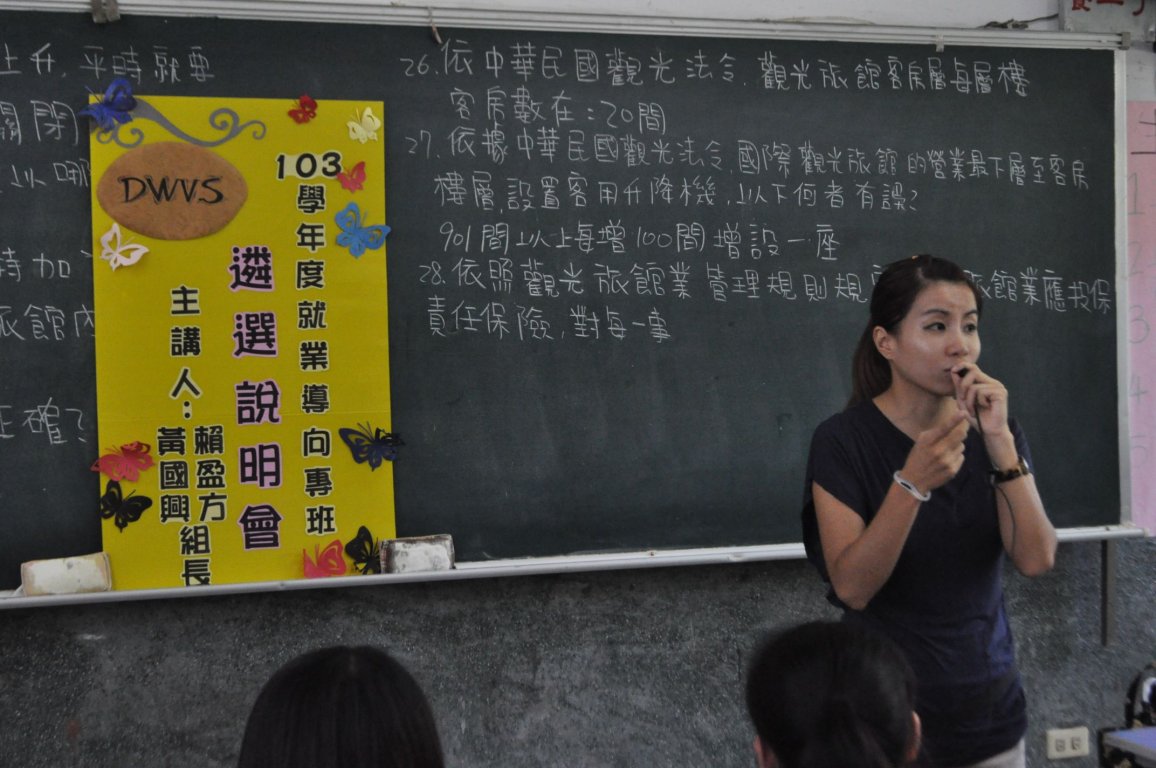 上升，平時就要
關閉
以哪
時加
旅館內
正確？
DWVS
103學年度就業導向專班
遴選說明會
主講人：
賴盈方
黃國興
組長
26.依中華民國觀光法令，觀光旅館客房層每層樓
客房數在：20間
27.依據中華民國觀光法令，國際觀光旅館的營業最下層至客房
樓層，設置客用升降機，以下何者有誤？
901間以上每增100間增設一座
28.依照觀光旅館業管理規則規
旅館業應投保
責任保險，對每一事
1
2
3
4
5